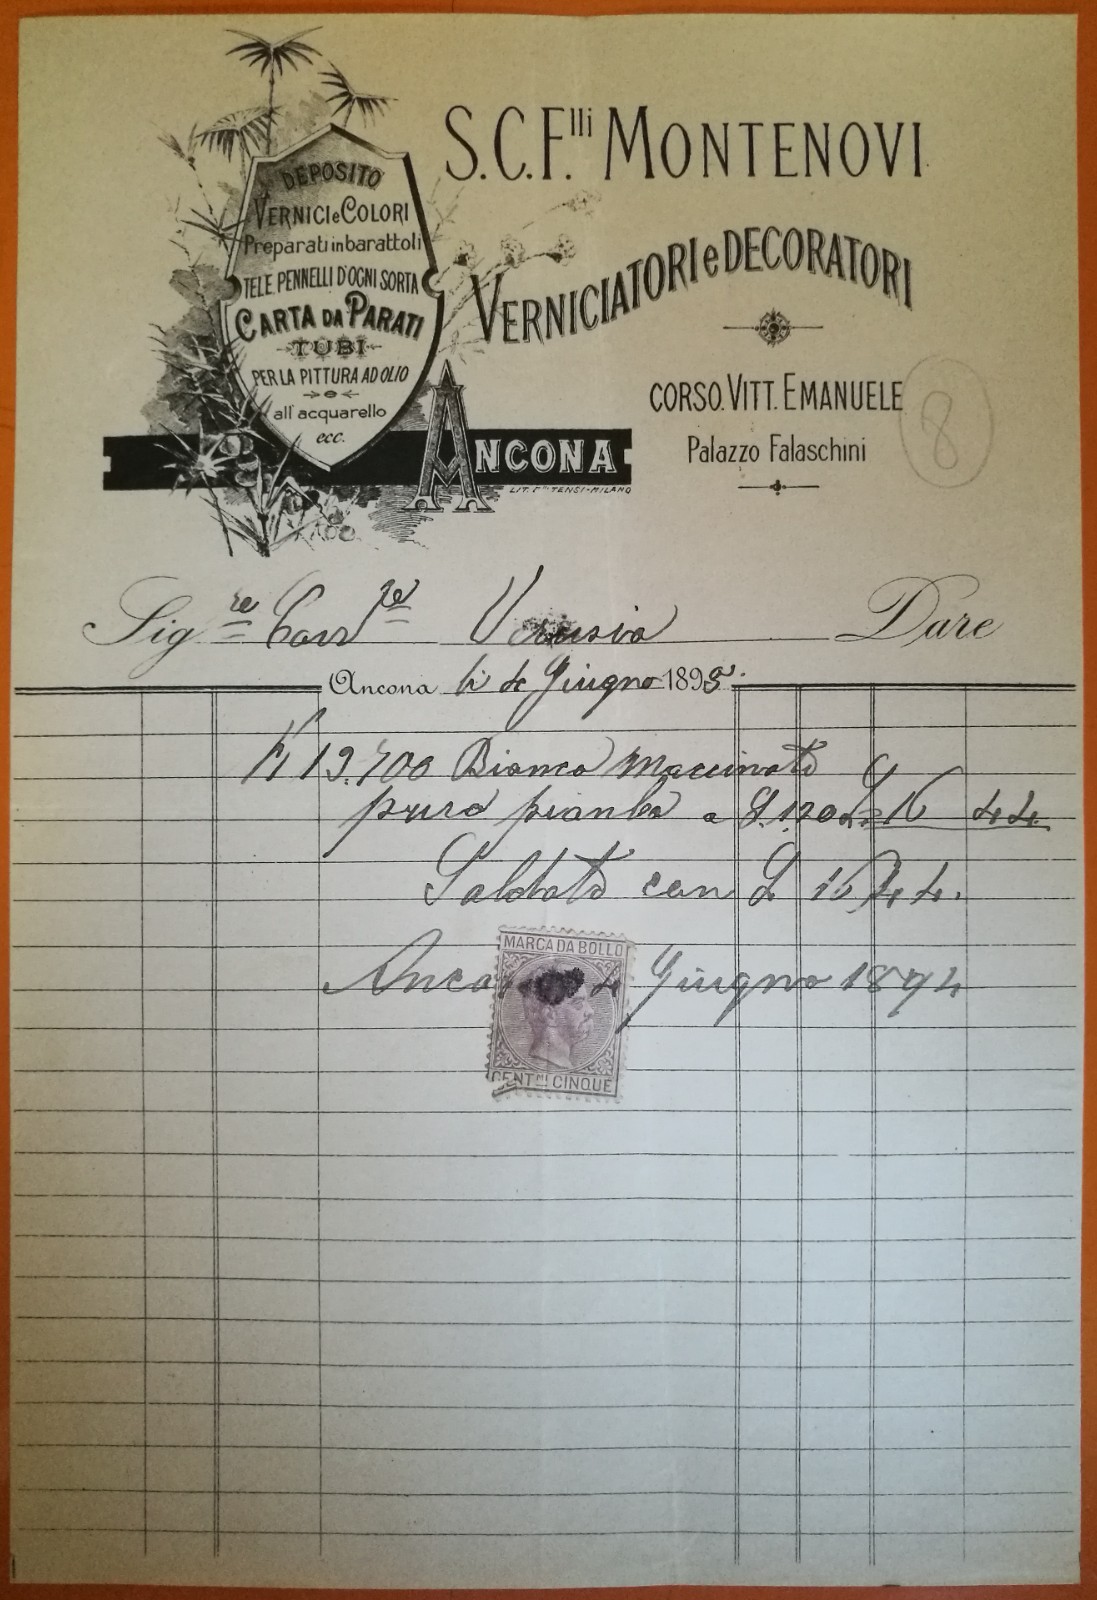 S.C.Flli MONTENOVI
VERNICIATORI e DECORATORI
CORSO. VITT. EMANUELE
Palazzo Falaschini
8
DEPOSITO
VERNICI e COLORI
Preparati in barattoli
TELE PENNELLI D'OGNI SORTA
CARTA DA PARATI
TUBI
PER LA PITTURA AD OLIO
all'acquarello
ecc.
ANCONA
LIT. Flli TENSI-MILANO
Sigre Dare
Ancona li 4 Giugno 1895
13.700 Bianco Maccinato
puro a 1.20 16 44
Saldato con L 16,44.
MARCA DA BOLLO
4 Giugno 1894
CENTmi CINQUE